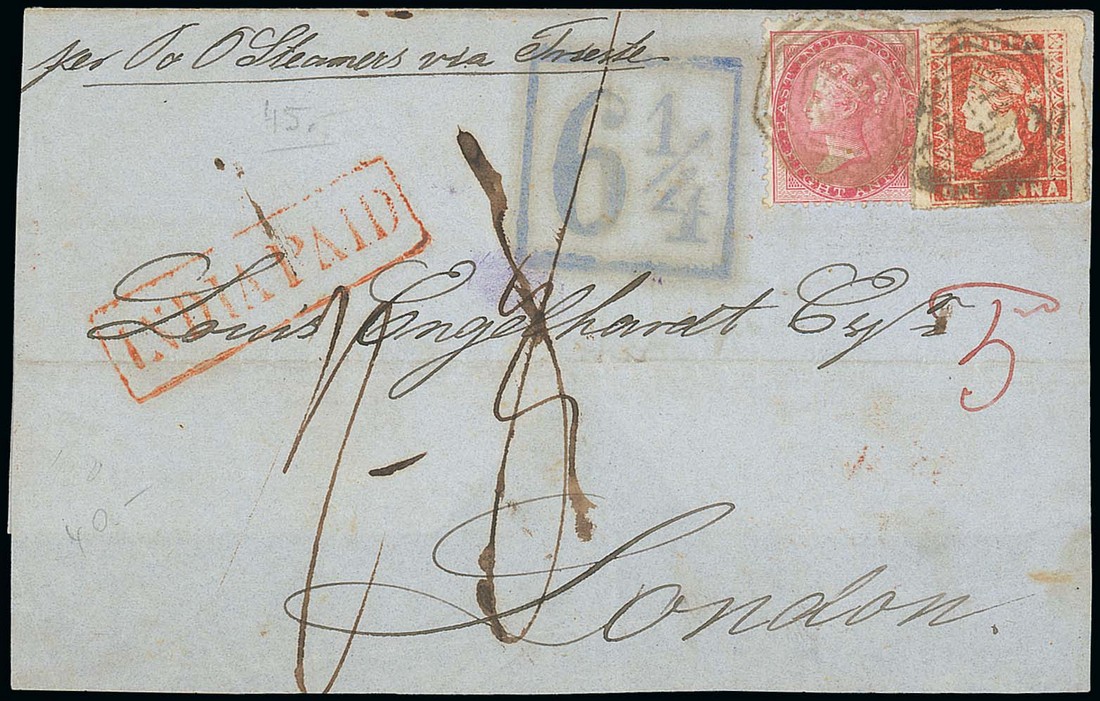 per P & O Steamers via Trieste
45.
6 1/4
INDIA PAID
EAST INDIA POSTAGE
EIGHT ANNAS
INDIA
ONE ANNA
Louis Engelhardt Esqr
5
1-8
London
40-